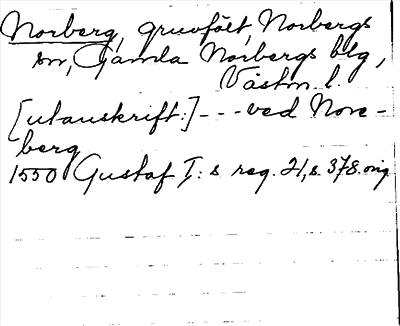 Norberg, gruvfält, Norbergs
sn, Gamla Norbergs blg,
Västm. l.
[utanskrift:] - - - ved Nore-
berg
1550 Gustaf I:s reg. 21, s. 378. orig.